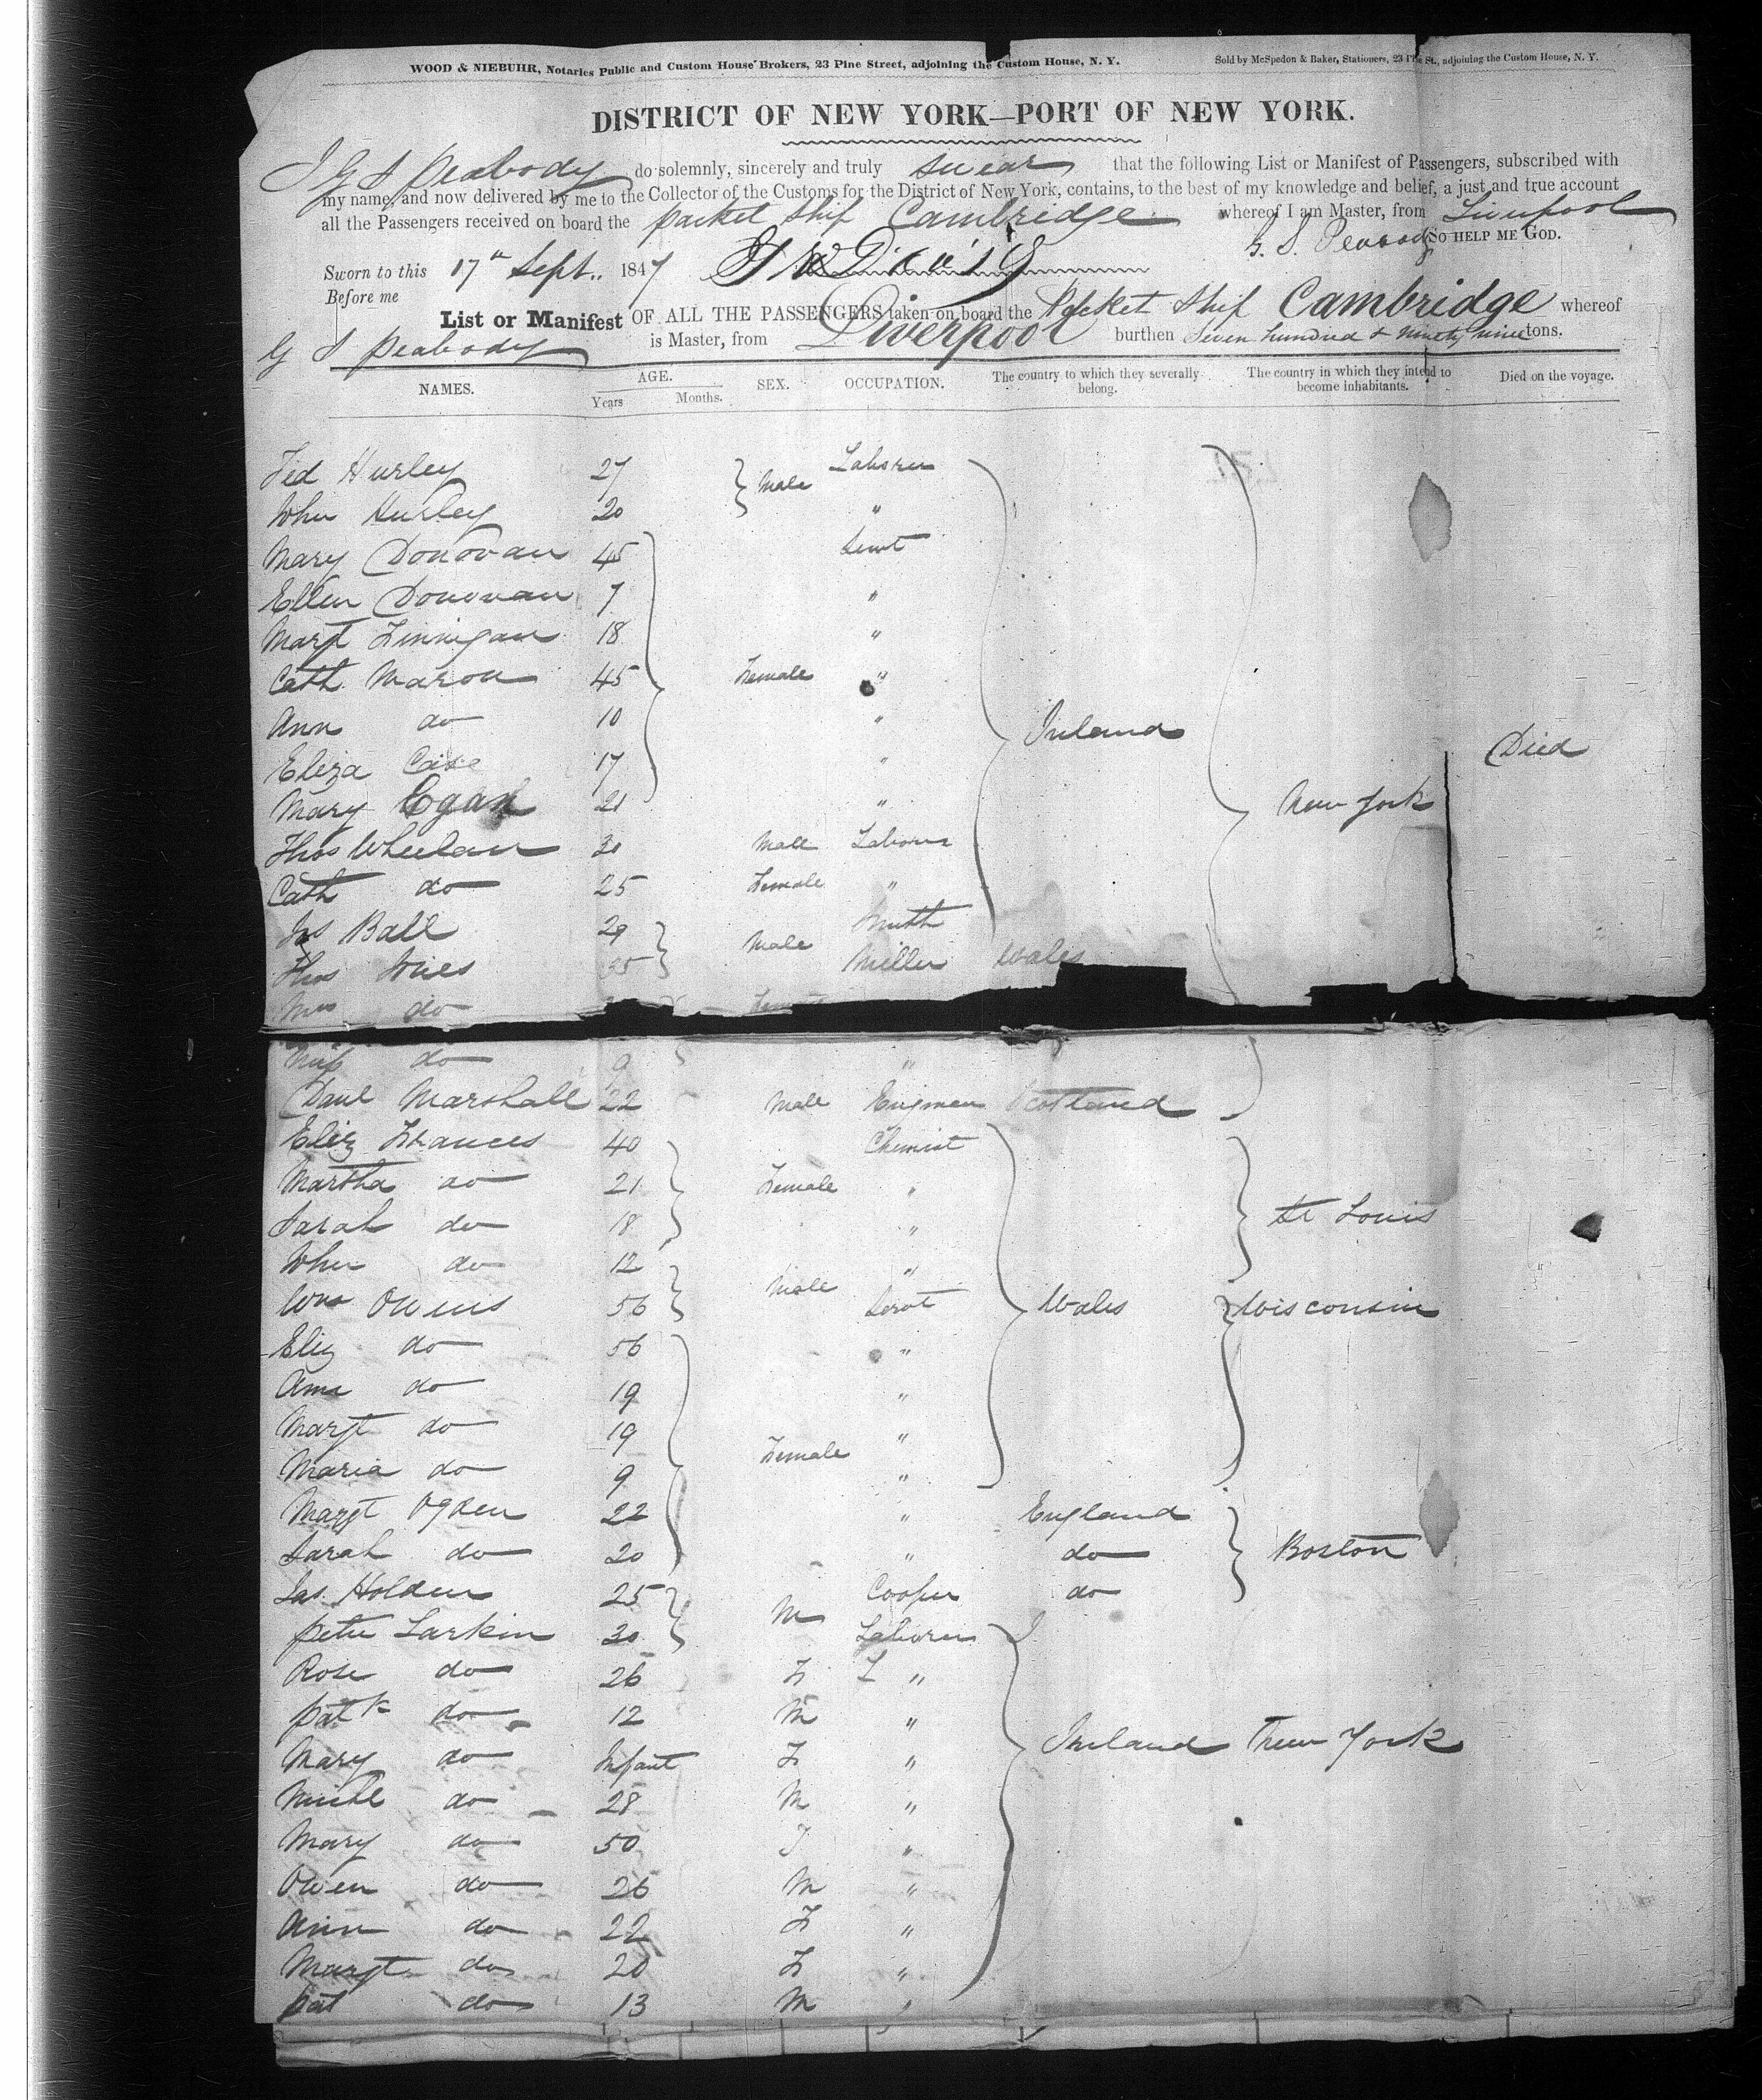 WOOD & NIEBUHR, Notaries Public and Custom House Brokers, 23 Pine Street, adjoining the Custom House, N. Y.
Sold by McSpedon & Baker, Stationers, 23 Pine St., adjoining the Custom House, N. Y.
DISTRICT OF NEW YORK—PORT OF NEW YORK.
I G S Peabody do solemnly, sincerely and truly swear that the following List or Manifest of Passengers, subscribed with
my name, and now delivered by me to the Collector of the Customs for the District of New York, contains, to the best of my knowledge and belief, a just and true account
all the Passengers received on board the packet ship Cambridge whereof I am Master, from Liverpool
G. S. Peabody SO HELP ME GOD.
Sworn to this 17th Sept. 1847
Before me
List or Manifest OF ALL THE PASSENGERS taken on board the Packet Ship Cambridge whereof
G S Peabody is Master, from Liverpool burthen Seven hundred & ninety nine tons.
NAMES. AGE. Years Months. SEX. OCCUPATION. The country to which they severally belong. The country in which they intend to become inhabitants. Died on the voyage.
Hurley 27 Male Laborer
Wm Hurley 20 "
Mary Donovan 45 Servt
Ellen Donovan 7 "
Margt Finnigan 18 "
Cath Maron 45 Female "
Ann do 10 " Ireland
Eliza Case 17 " Died
Mary Egan 21 " New York
Thos Wheelan 30 Male Laborer
Cath do 25 Female "
Jas Ball 29 Male Smith
Thos 35 Miller Wales
Mrs do
Miss do 9 "
Danl Marshall 22 Male Scotland
Eliz Frances 40 Chemist
Martha do 21 Female "
Sarah do 18 " St Louis
Wm do 12 Male "
Wm Owens 56 Servt Wales Wisconsin
Eliz do 56 "
Ann do 19 "
Margt do 19 "
Maria do 9 Female "
Margt Ogden 22 " England
Sarah do 20 " do Boston
Jas. Holden 25 M Cooper do
Peter Larkin 30 Laborer
Rose do 26 F "
Patk do 12 M "
Mary do Infant F " Ireland New York
Michl do 28 M "
Mary do 50 F "
Owen do 26 M "
Ann do 22 F "
Margt do 20 F "
Pat do 13 M "